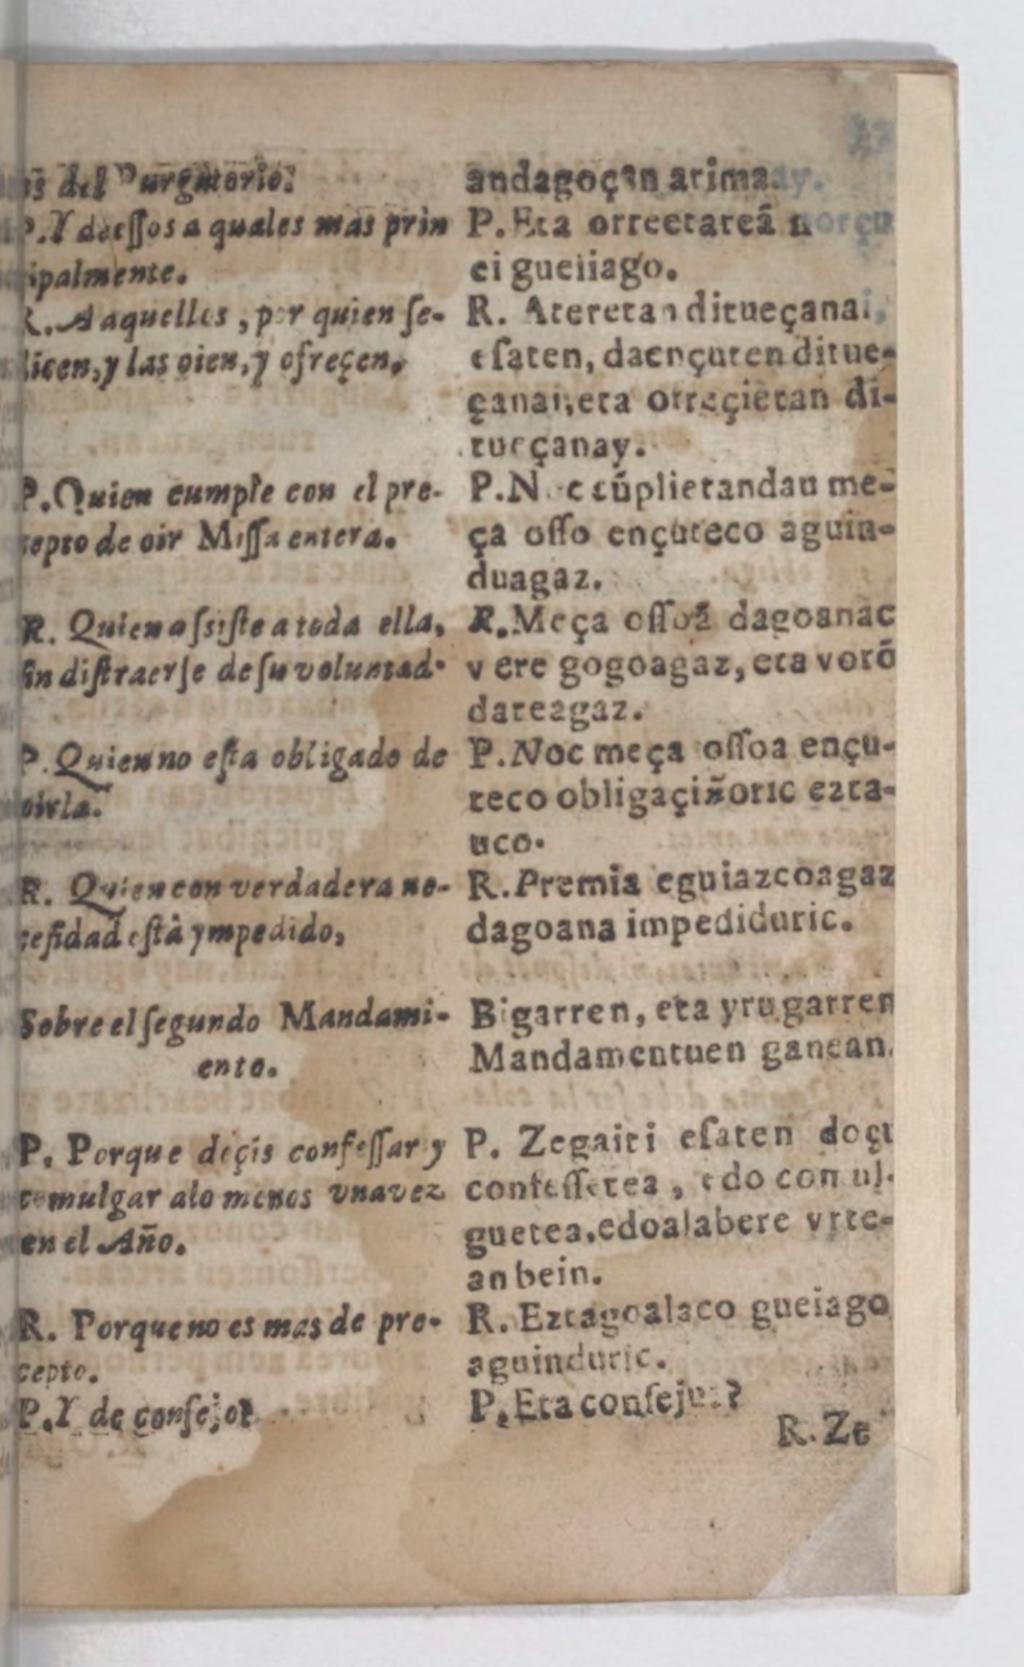 del Purgatorio?
P.Y deessos a quales mas prin
cipalmente.
R.A aquellos, por quien se-
dicen, y las oien, y ofreçen.
P.Quien cumple con el pre-
cepto de oir Missa entera.
R. Quien assiste a toda ella,
sin distraerse de su voluntad.
P. Quien no esta obligado de
oirla.
R. Quien con verdadera ne-
cesidad està ympedido,
Sobre el segundo Mandami-
ento.
P. Porque deçis confessar y
comulgar alo menos vna vez
en el Año.
R. Porque no es mas de pre-
cepto.
P.Y de consejo?
andagoçan arimaay.
P.Eta orreetareã norçu
ei gueiiago.
R. Ateretan ditueçanai,
esaten, daençuten ditue-
çanai, eta orreçietan di-
tueçanay.
P.Noc cũplietandau me-
ça osso ençuteco aguin-
duagaz.
R.Meça ossoã dagoanac
vere gogoagaz, eta vorõ
dateagaz.
P.Noc meça ossoa ençu-
teco obligaçiñoric ezta-
uco.
R.Premia eguiazcoagaz
dagoana impediduric.
Bigarren, eta yrugarren
Mandamentuen ganean.
P. Zegaiti esaten doçu
confessetea, edo comul-
guetea, edoalabere vrte-
an bein.
R. Eztagoalaco gueiago
aguinduric.
P. Eta consejuz?
R. Ze